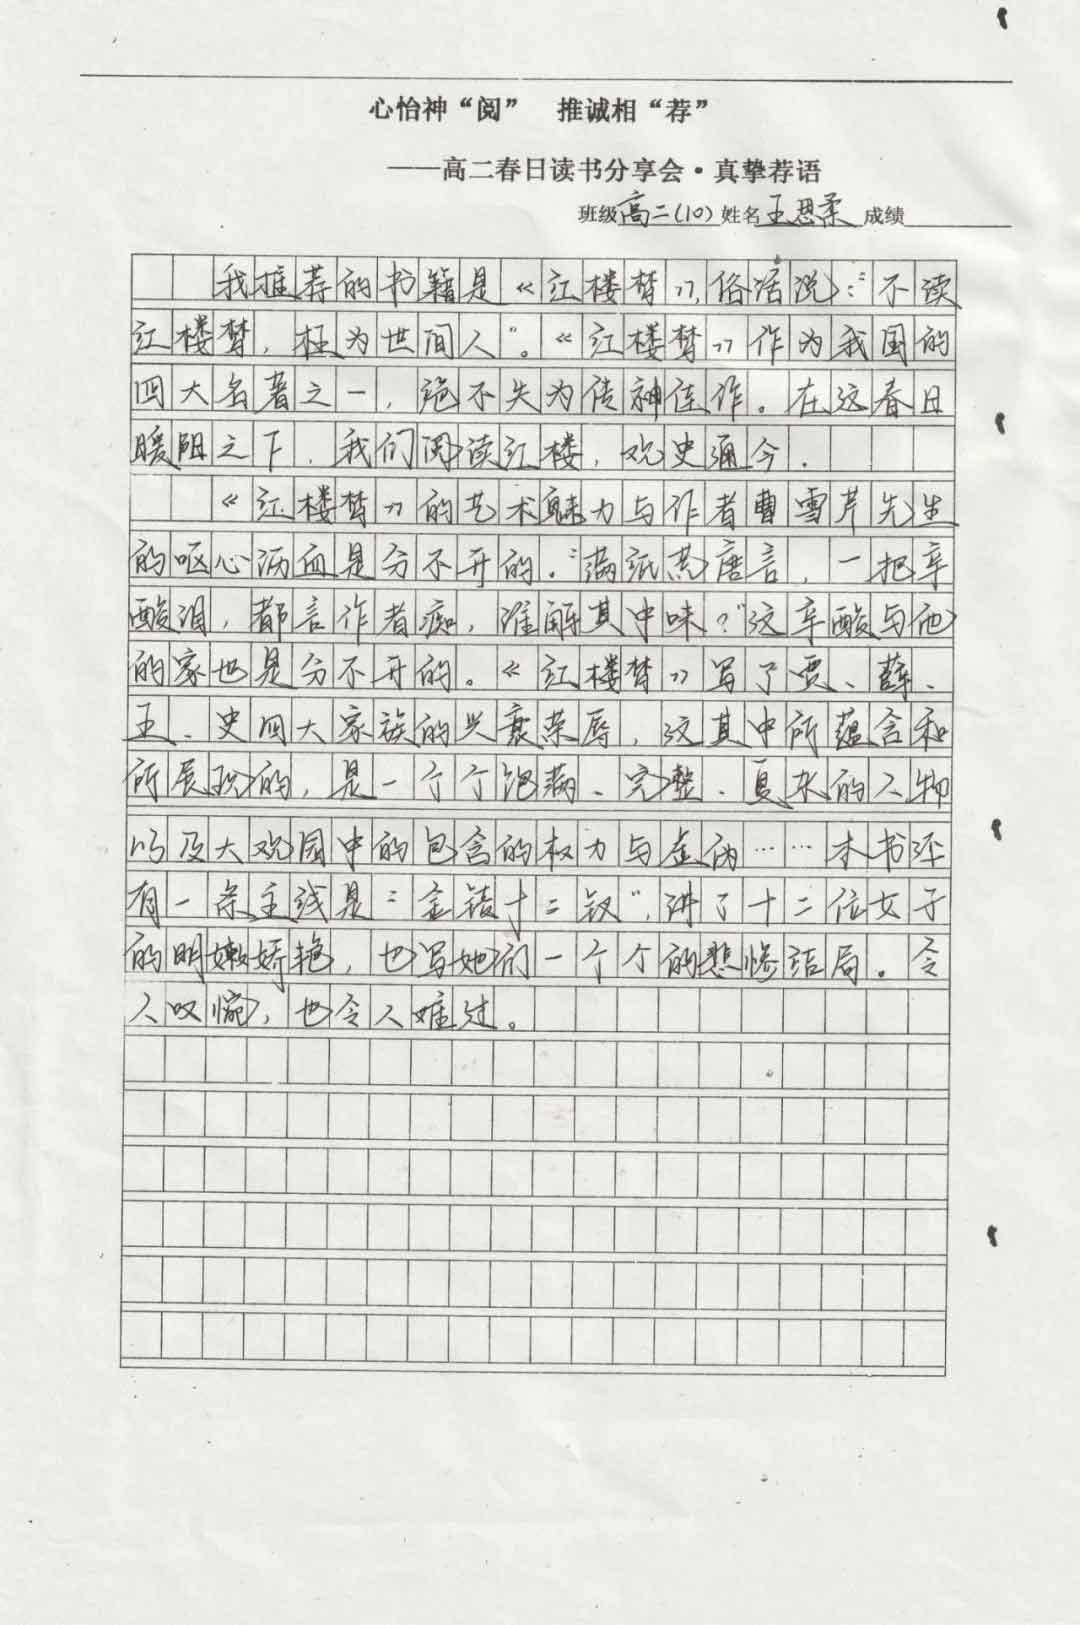 心怡神“阅”　推诚相“荐”
——高二春日读书分享会·真挚荐语
班级高二(10)姓名王思柔成绩
我推荐的书籍是《红楼梦》,俗话说:“不读
红楼梦,枉为世间人”。《红楼梦》作为我国的
四大名著之一,绝不失为传神佳作。在这春日
暖阳之下,我们阅读红楼,观史通今.
《红楼梦》的艺术魅力与作者曹雪芹先生
的呕心沥血是分不开的.“满纸荒唐言,一把辛
酸泪,都言作者痴,谁解其中味?”这辛酸与他
的家也是分不开的。《红楼梦》写了贾、薛、
王、史四大家族的兴衰荣辱,这其中所蕴含和
所展现的,是一个个饱满、完整、复杂的人物
以及大观园中的包含的权力与虚伪……本书还
有一条主线是“金陵十二钗”,讲了十二位女子
的明嫩娇艳,也写她们一个个的悲惨结局。令
人叹惋,也令人难过。